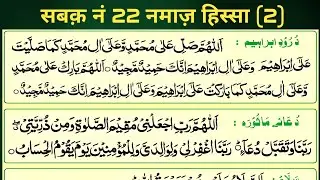 सबक़ नं 22 नमाज़ हिस्सा (2)
دُرُودِ ابراہیم : اَللّٰهُمَّ صَلِّ عَلٰى مُحَمَّدٍ وَّعَلٰٓى اٰلِ مُحَمَّدٍ كَمَا صَلَّيْتَ
عَلٰٓى اِبْرَاهِيْمَ وَعَلٰٓى اٰلِ اِبْرَاهِيْمَ اِنَّكَ حَمِيْدٌ مَّجِيْدٌ ۞ اَللّٰهُمَّ بَارِكْ عَلٰى مُحَمَّدٍ
وَّعَلٰٓى اٰلِ مُحَمَّدٍ كَمَا بَارَكْتَ عَلٰٓى اِبْرَاهِيْمَ وَعَلٰٓى اٰلِ اِبْرَاهِيْمَ اِنَّكَ حَمِيْدٌ مَّجِيْدٌ ۞
دُعائے مَاثُورَہ : اَللّٰهُمَّ رَبِّ اجْعَلْنِيْ مُقِيْمَ الصَّلٰوةِ وَمِنْ ذُرِّيَّتِيْ
رَبَّنَا وَتَقَبَّلْ دُعَآءِ ۞ رَبَّنَا اغْفِرْ لِيْ وَلِوَالِدَيَّ وَلِلْمُؤْمِنِيْنَ يَوْمَ يَقُوْمُ الْحِسَابُ ۞